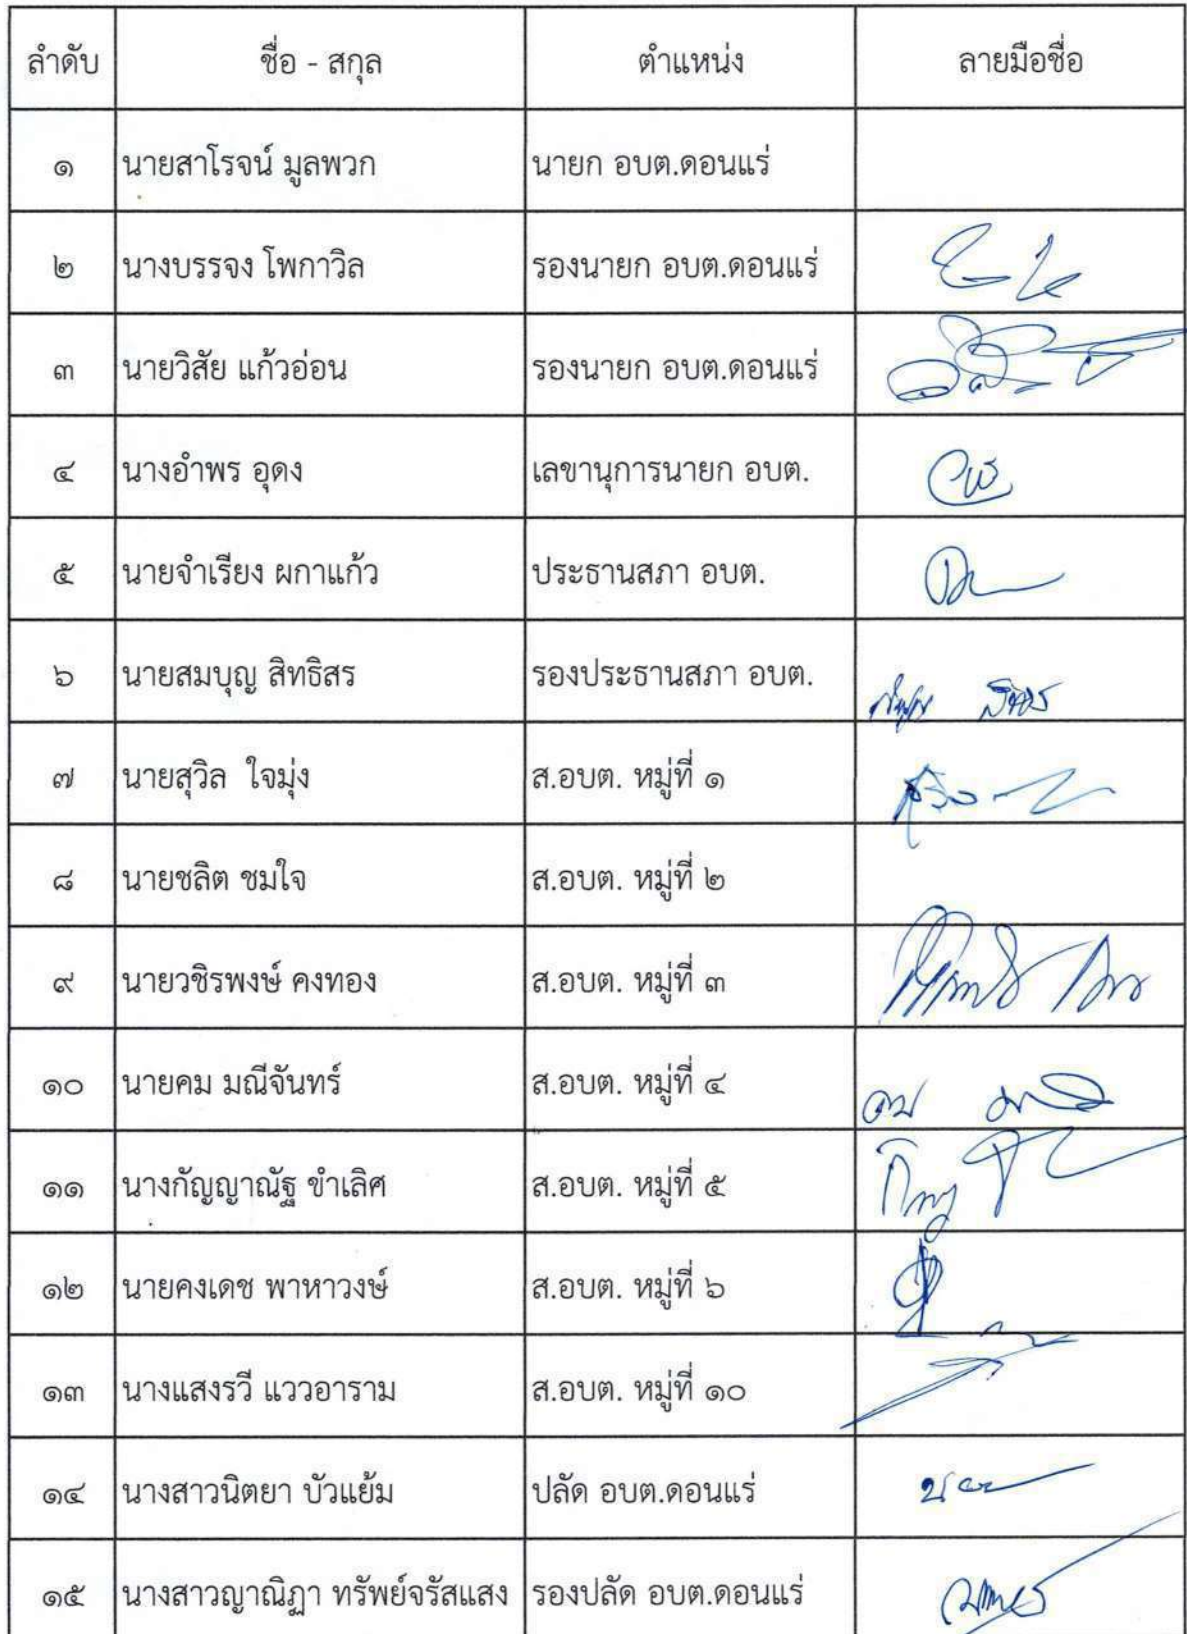 ลำดับ ชื่อ - สกุล ตำแหน่ง ลายมือชื่อ
๑ นายสาโรจน์ มูลพวก นายก อบต.ดอนแร่
๒ นางบรรจง โพกาวิล รองนายก อบต.ดอนแร่
๓ นายวิสัย แก้วอ่อน รองนายก อบต.ดอนแร่
๔ นางอำพร อุดง เลขานุการนายก อบต.
๕ นายจำเรียง ผกาแก้ว ประธานสภา อบต.
๖ นายสมบุญ สิทธิสร รองประธานสภา อบต.
๗ นายสุวิล ใจมุ่ง ส.อบต. หมู่ที่ ๑
๘ นายชลิต ชมใจ ส.อบต. หมู่ที่ ๒
๙ นายวชิรพงษ์ คงทอง ส.อบต. หมู่ที่ ๓
๑๐ นายคม มณีจันทร์ ส.อบต. หมู่ที่ ๔
๑๑ นางกัญญาณัฐ ขำเลิศ ส.อบต. หมู่ที่ ๕
๑๒ นายคงเดช พาหาวงษ์ ส.อบต. หมู่ที่ ๖
๑๓ นางแสงรวี แววอาราม ส.อบต. หมู่ที่ ๑๐
๑๔ นางสาวนิตยา บัวแย้ม ปลัด อบต.ดอนแร่
๑๕ นางสาวญาณิฏา ทรัพย์จรัสแสง รองปลัด อบต.ดอนแร่